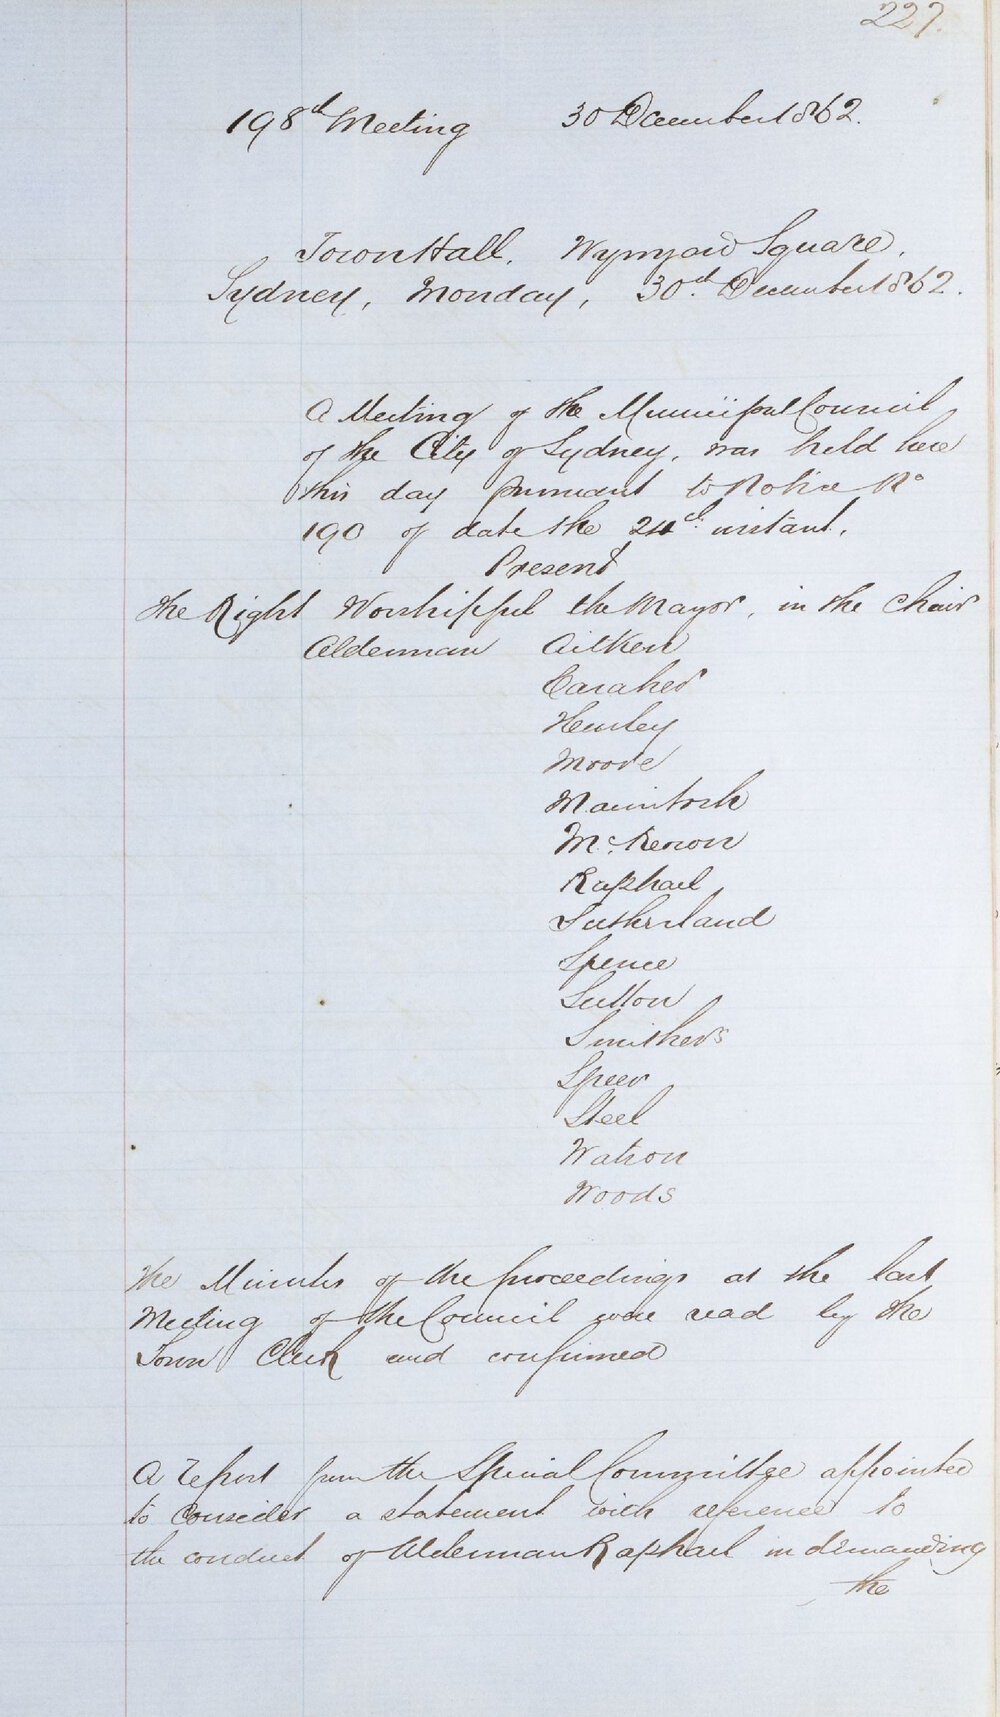 227.
198th Meeting 30 December 1862.
Town Hall, Wynyard Square,
Sydney, Monday, 30th December 1862.
A Meeting of the Municipal Council
of the City of Sydney, was held here
this day pursuant to Notice No
190 of date the 24th instant.
Present
The Right Worshipful the Mayor, in the Chair
Alderman Aitken
Caraher
Henley
Moore
Macintosh
McKeron
Raphael
Sutherland
Spence
Sutton
Smithers
Speer
Steel
Watson
Woods
The Minutes of the proceedings at the last
Meeting of the Council were read by the
Town Clerk and confirmed
A report from the Special Committee appointed
to consider a statement with reference to
the conduct of Alderman Raphael in demanding
the